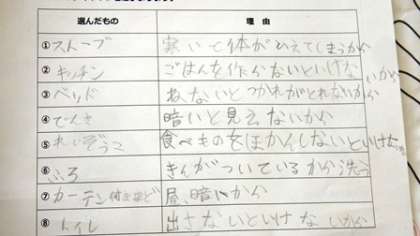 選んだもの 理由
① ストーブ 寒いと体がひえてしまうから
② キッチン ごはんを作らないといけないから
③ ベッド ねないとつかれがとれないから
④ でんき 暗いと見えないから
⑤ れいぞうこ 食べものをほかんしないといけない
⑥ ふろ きんがついているから洗う
⑦ カーテン付きまど 暗いから
⑧ トイレ 出さないといけないから